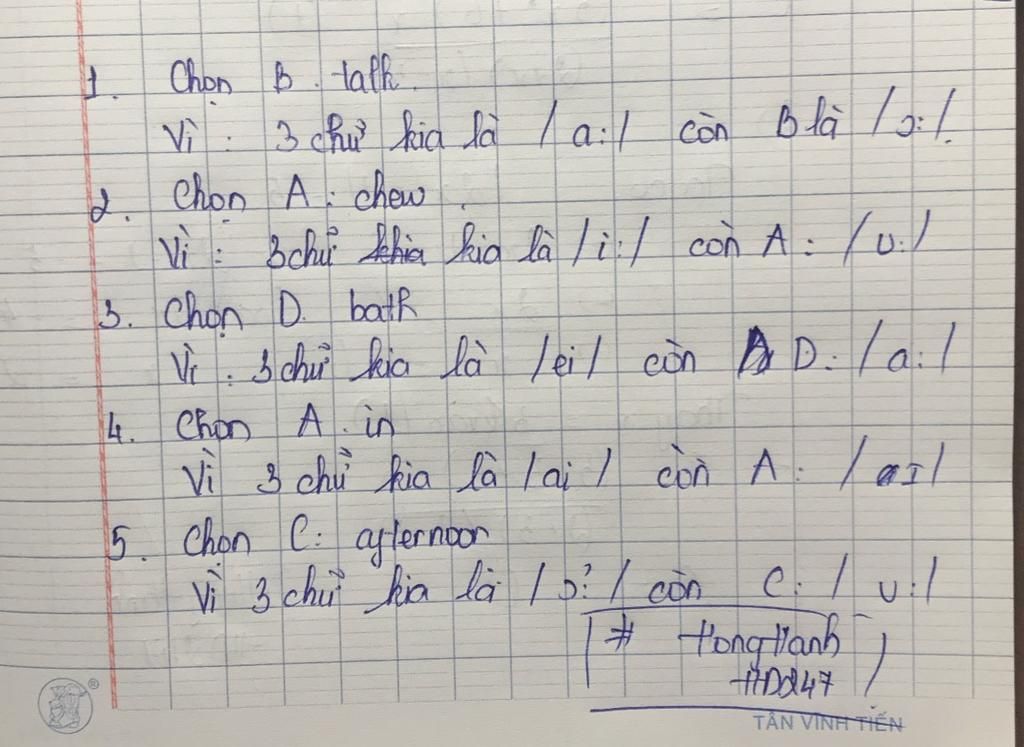 1. Chọn B. talk.
Vì : 3 chữ kia là / a: / còn B là / ɔ: /.
2. Chọn A : chew.
Vì : 3 chữ khia kia là / i: / còn A : / u: /
3. Chọn D. bath
Vì : 3 chữ kia là / ei / còn A D : / a: /
4. Chọn A. in
Vì 3 chữ kia là / ai / còn A : / I /
5. Chọn C: afternoon
Vì 3 chữ kia là / ɔ: / còn C : / u: /
# HongHanh
HD247
®
TÂN VĨNH TIẾN